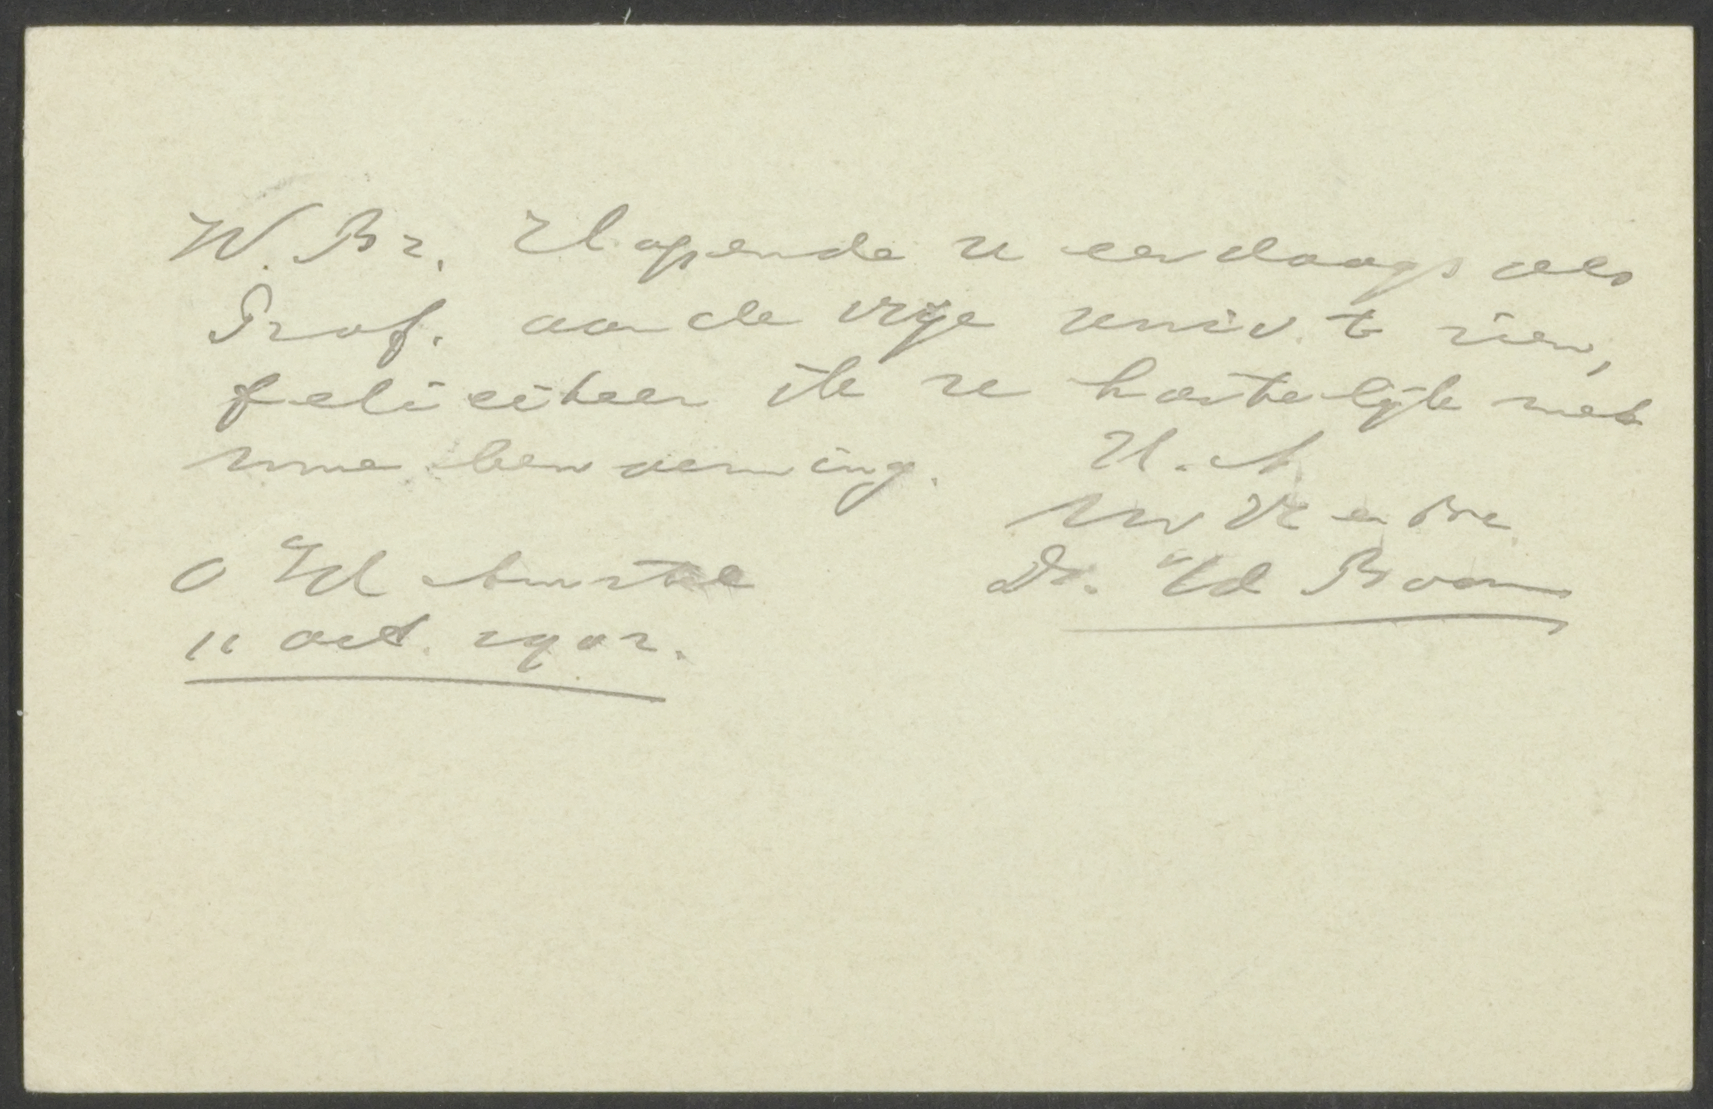 W. Br. Hopende u eerdaags als
Prof. aan de vrije univ. te zien,
feliciteer ik u hartelijk met
uwe benoeming. H. A
Uw Vr en Br
O Id Amstel Dr. Id Boom
11 oct. 1902.